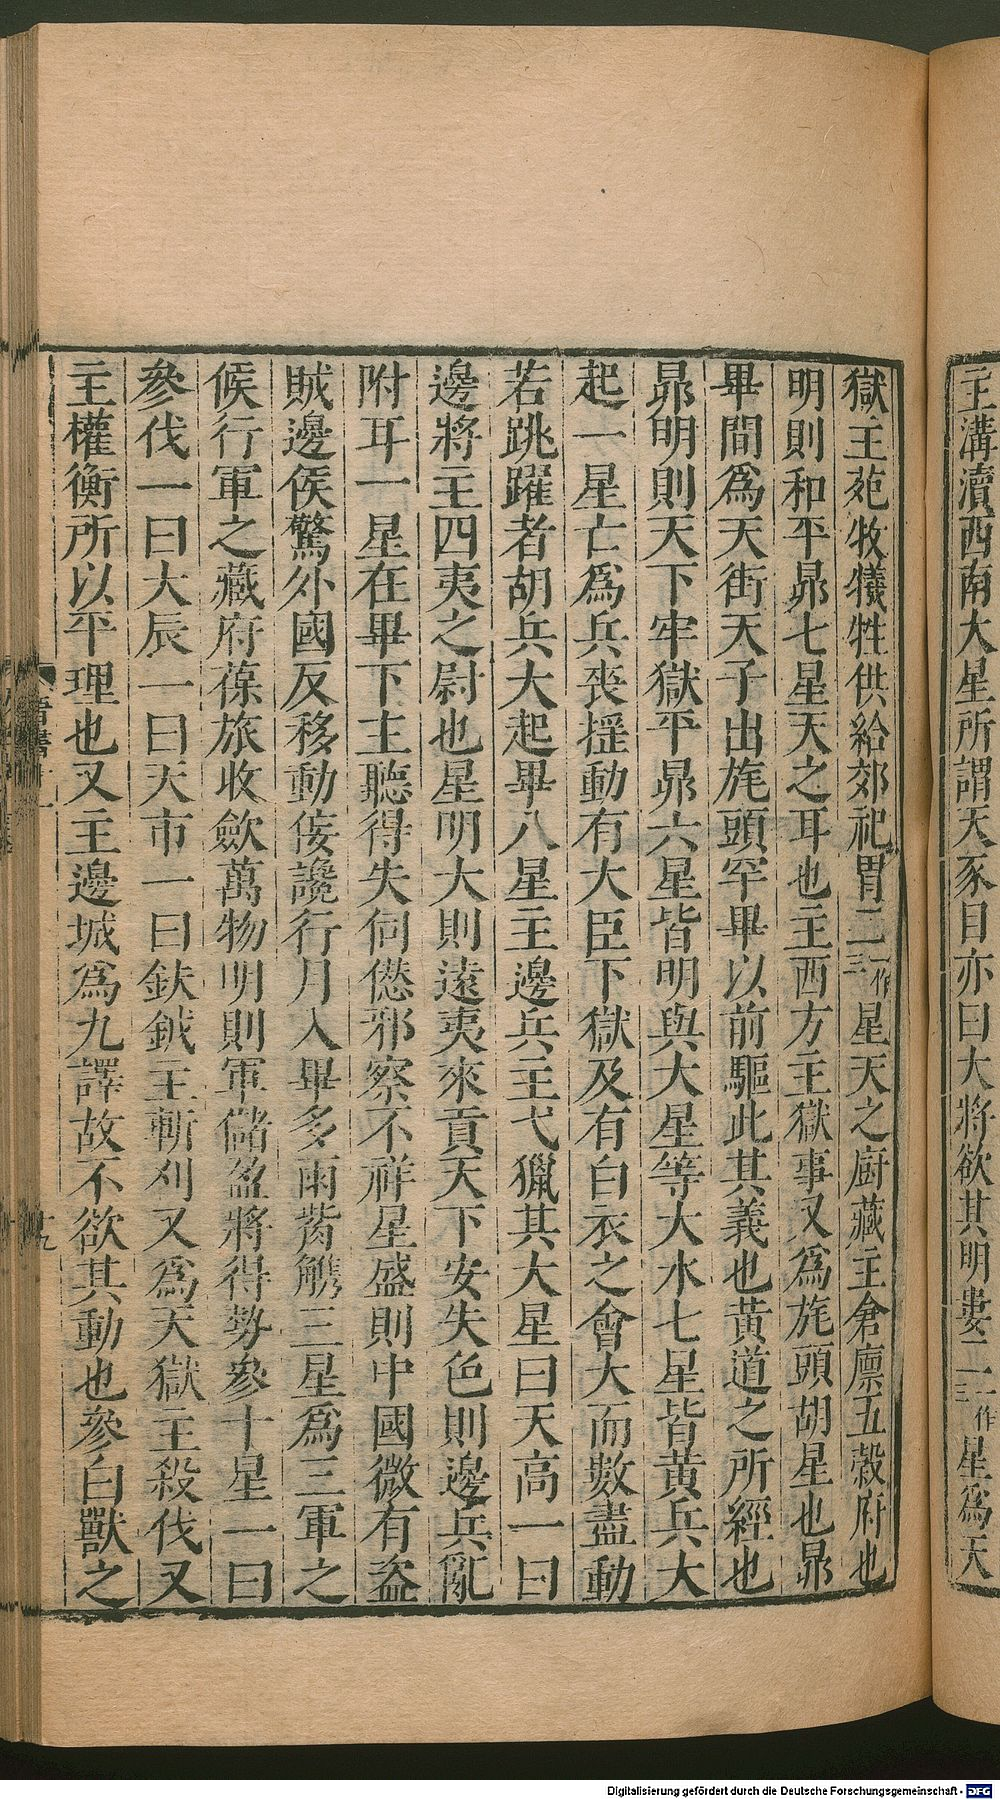 主溝瀆西南大星所謂天豕目亦曰大將欲其明婁二一作三星爲天
獄主苑牧犧牲供給郊祀胃二一作三星天之廚藏主倉廩五穀府也
明則和平昴七星天之耳也主西方主獄事又爲旄頭胡星也昴
畢間爲天街天子出旄頭罕畢以前驅此其義也黃道之所經也
昴明則天下牢獄平昴六星皆明與大星等大水七星皆黃兵大
起一星亡爲兵喪搖動有大臣下獄及有白衣之會大而數盡動
若跳躍者胡兵大起畢八星主邊兵主弋獵其大星曰天高一曰
邊將主四夷之尉也星明大則遠夷來貢天下安失色則邊兵亂
附耳一星在畢下主聽得失伺愆邪察不祥星盛則中國微有盜
賊邊侯驚外國反移動佞讒行月入畢多雨觜觿三星爲三軍之
候行軍之藏府葆旅收歛萬物明則軍儲盈將得勢參十星一曰
參伐一曰大辰一曰天市一曰鈇鉞主斬刈又爲天獄主殺伐又
主權衡所以平理也又主邊城爲九譯故不欲其動也參白獸之
晉書十一
十九
Digitalisierung gefördert durch die Deutsche Forschungsgemeinschaft - DFG